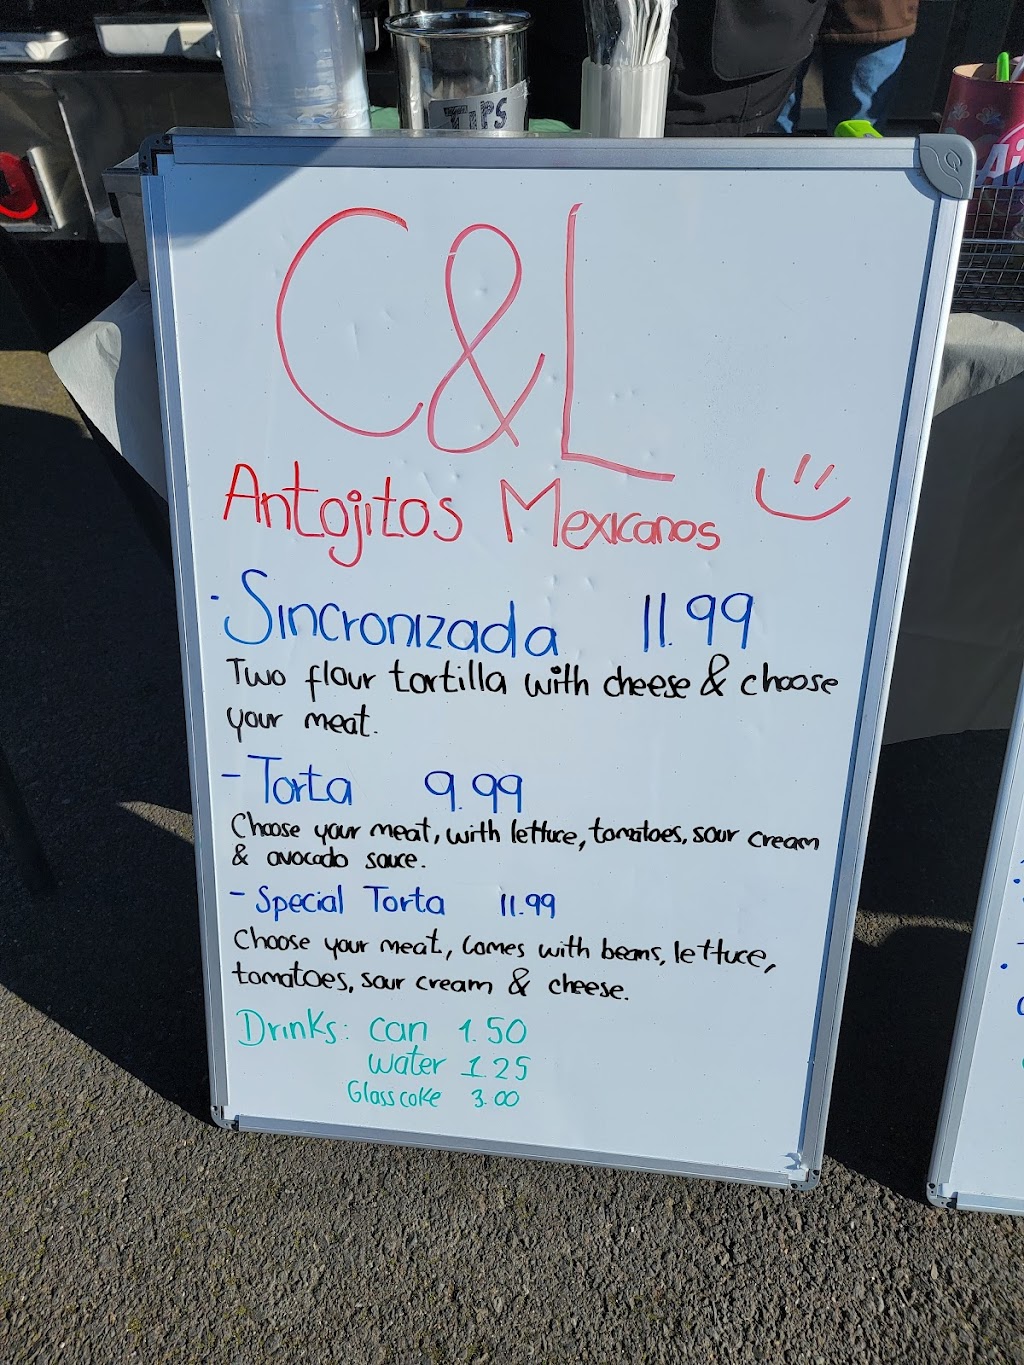 TIPS
C&L
Antojitos Mexicanos
· Sincronizada 11.99
Two flour tortilla with cheese & choose
your meat.
- Torta 9.99
Choose your meat, with lettuce, tomatoes, sour cream
& avocado sauce.
- Special Torta 11.99
Choose your meat, comes with beans, lettuce,
tomatoes, sour cream & cheese.
Drinks: can 1.50
water 1.25
Glass coke 3.00